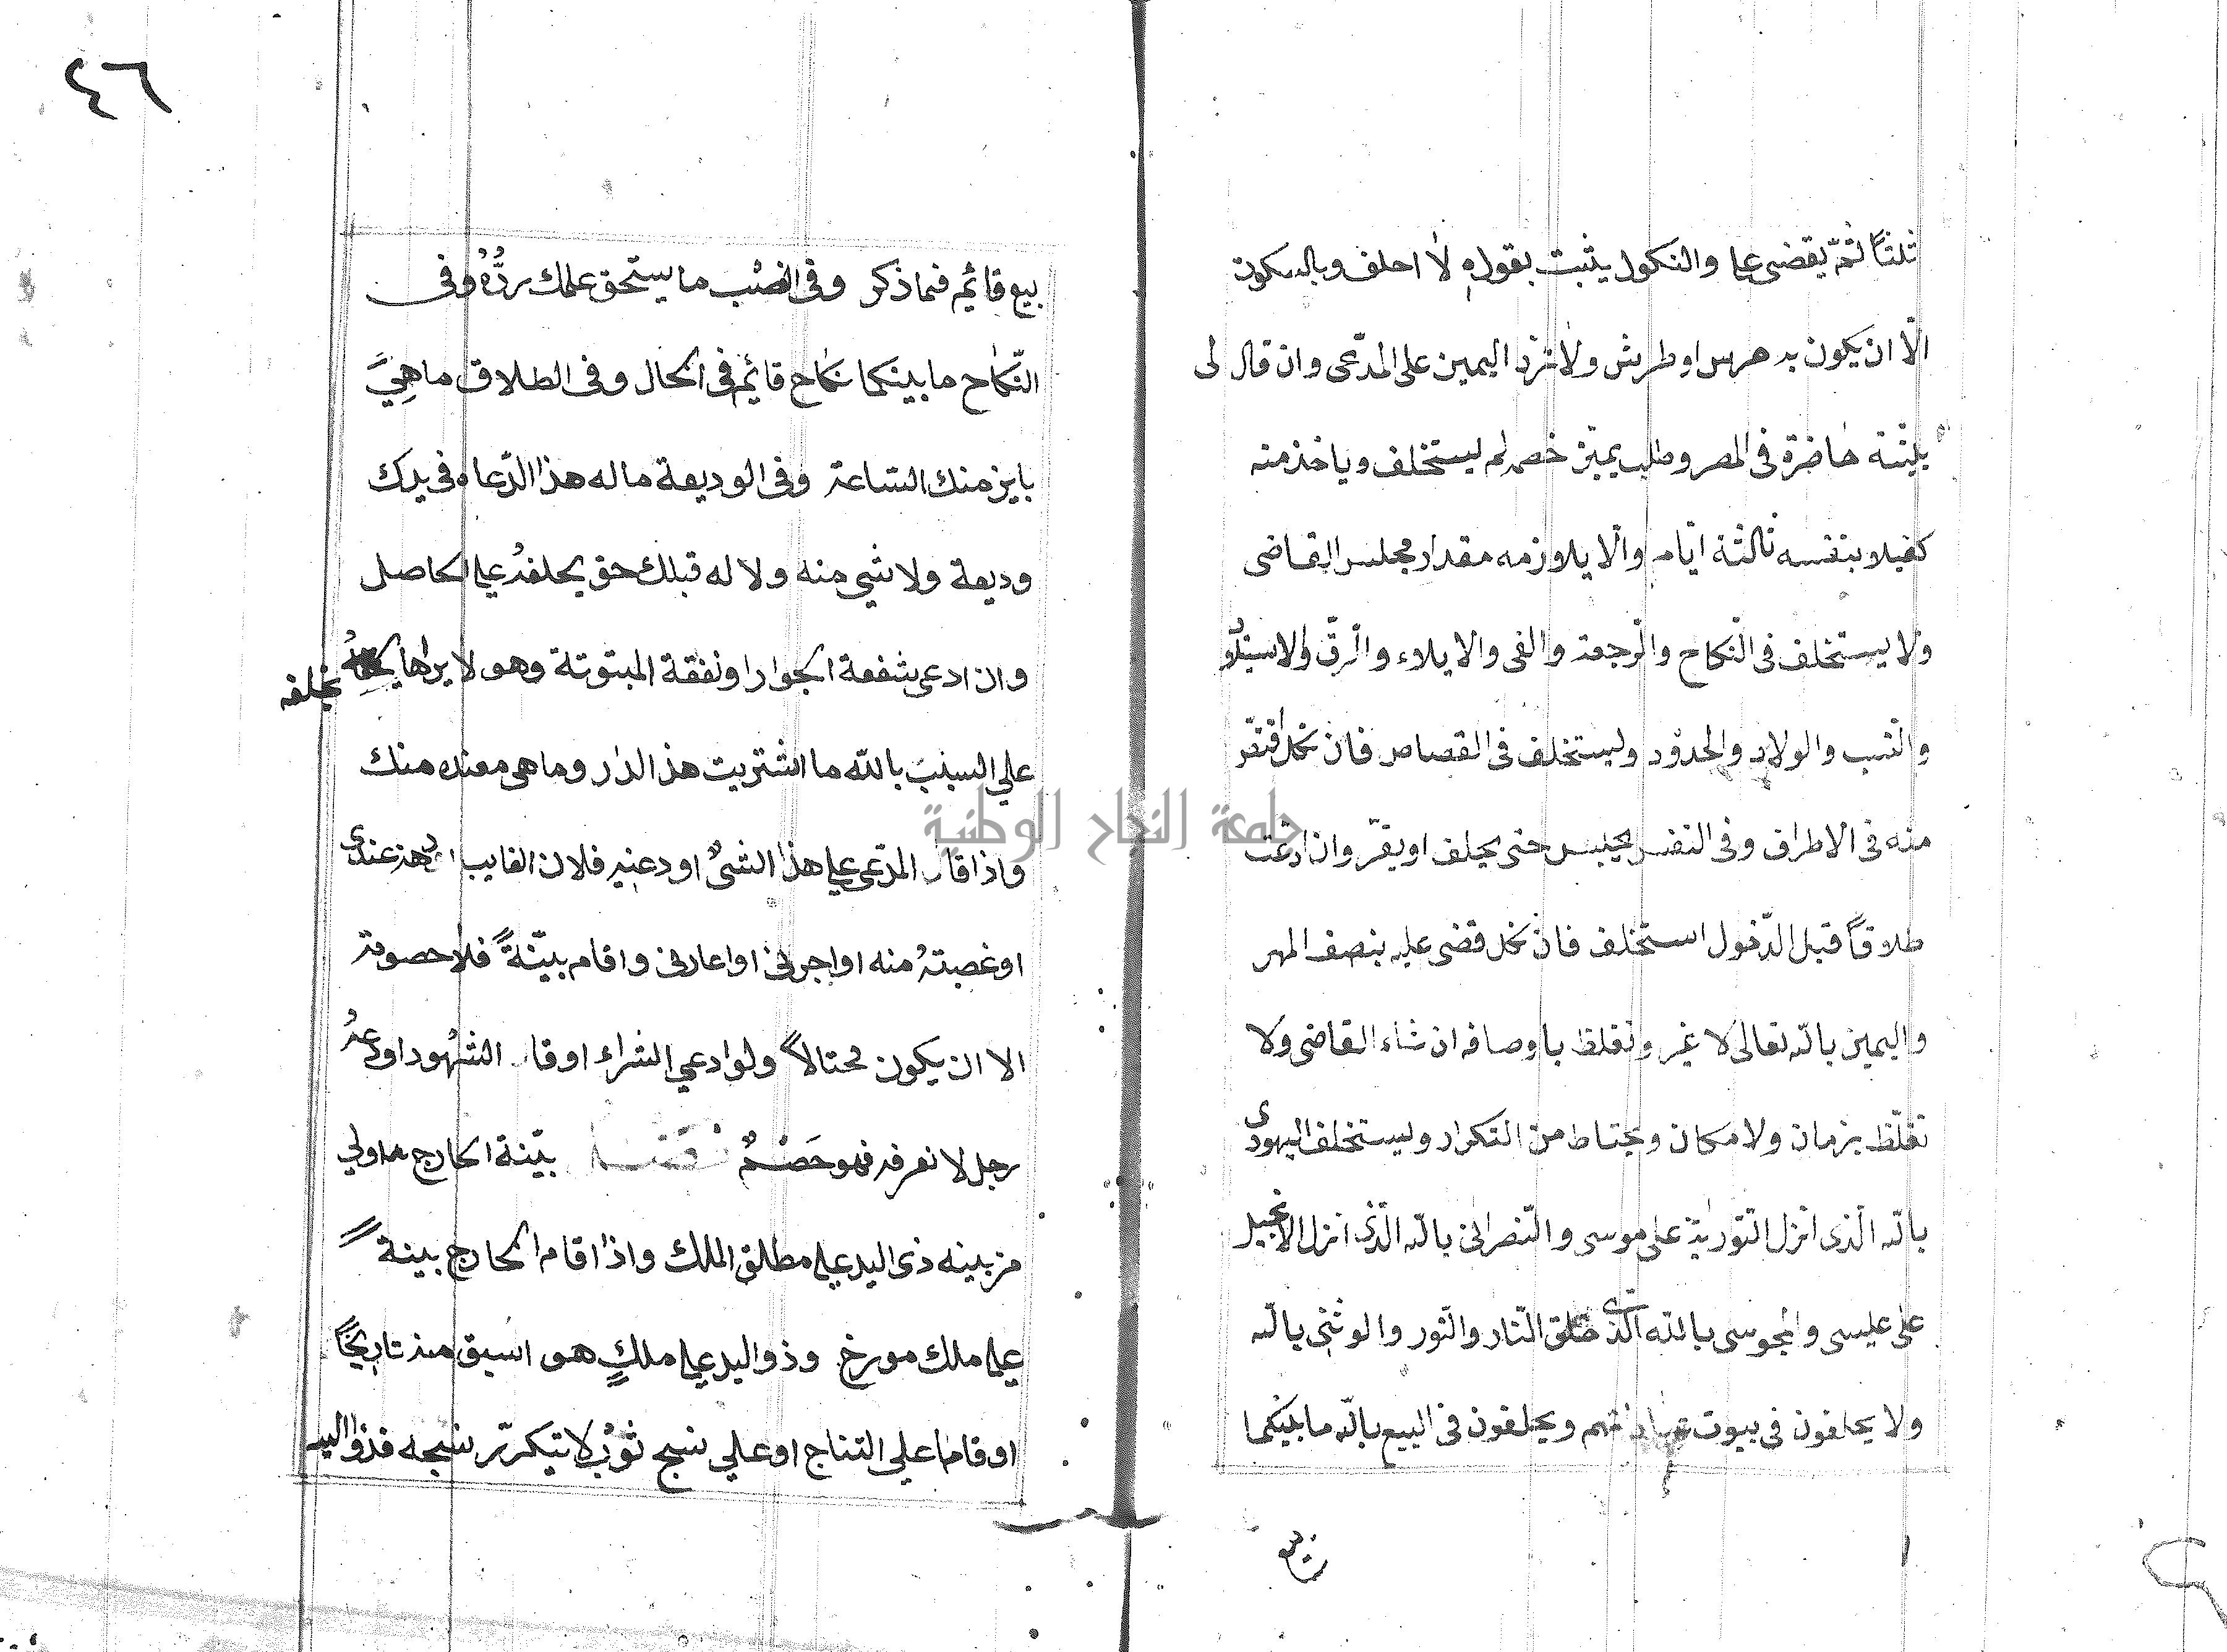 ثلثا ثم يقضى عليه والنكول يثبت بقوله لا احلف وبالسكوت
الّا ان يكون به خرس او طرش ولا ترد اليمين على المدّعى وان قال لى
بيّنة حاضرة فى المصر وطلب يمين خصمه لم يستحلف وياخذ منه
كفيلا بنفسه ثالثة ايّام والّا يلازمه مقدار مجلس القاضى
ولا يستحلف فى النّكاح والرّجعة والفى والايلاء والرّق والاستيلاد
والنسب والولاء والحدود ويستحلف فى القصاص فان نكل اقتص
منه فى الاطراف وفى النفس يحبس حتى يحلف او يقرّ وان ادّعت
طلاقاً قبل الدّخول استحلف فان نكل قضى عليه بنصف المهر
واليمين بالله تعالى لا غير وتغلظ باوصافه ان شاء القاضى ولا
تغلّظ بزمان ولا مكان ويحتاط من التكرار ويستحلف اليهودى
بالله الّذى انزل التّورية على موسى والنّصرانى بالله الّذى انزل الانجيل
على عيسى والمجوسى بالله الّذى خلق النّار والنّور والوثنى بالله
ولا يحلفون فى بيوت عباداتهم ويحلفون فى البيع بالله ما بينكما
بيع
٤٦
بيع قائم فيما ذكر وفى الغصب ما يستحق عليك ردُّهُ وفى
النّكاح ما بينكما نكاح قائم فى الحال وفى الطلاق ما هِيَ
باين منك الساعة وفى الوديعة ما له هذا الّدعاه فى يدك
وديعة ولا شى منه ولا له قبلك حق يحلفهُ على الحاصل
وان ادعى شفعة الجوار او نفقة المبتوتة وهو لا يراها
يحلفه
على السبب بالله ما اشتريت هذ الدار وما هى معتده منك
واذا قال المدّعى عليه هذا الشىُ اودعنيه فلان الغايب او رهنه عندى
او غصبتهُ منه او اجرنى او اعارنى واقام بيّنةً فلا خصومة
الا ان يكون محتالاً ولو ادعى الشراء او قال الشهود اودعهُ
رجل لا نعرفه فهو خَصْمٌ بيّنة الخارج اولى
من بينه ذى اليد على مطلق الملك واذا اقام الخارج بينةً
على ملك مورخ وذو اليد على ملكٍ هو اسبق منه تاريخاً
او قاما على النتاج او على نسج ثوبٍ لا يتكرّر نسجه فذو اليد
جامعة النجاح الوطنية